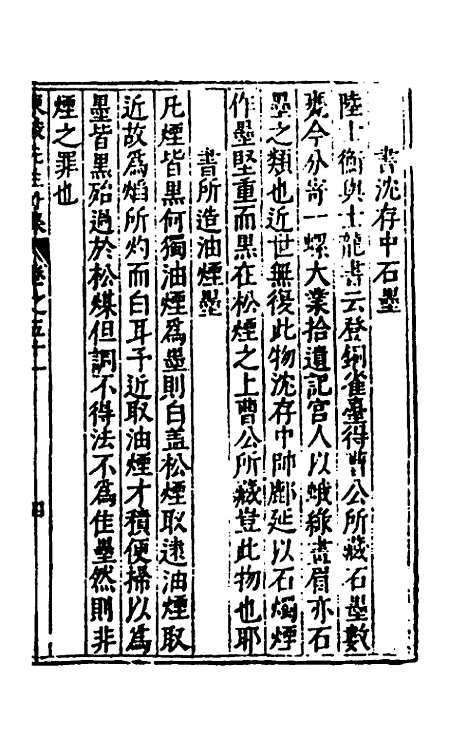 書沈存中石墨
陸士衡與士龍書云登銅雀臺得曹公所藏石墨數
甕今分寄一螺大業拾遺記宮人以蛾綠畫眉亦石
墨之類也近世無復此物沈存中帥鄜延以石燭煙
作墨堅重而黑在松煙之上曹公所藏豈此物也耶
書所造油煙墨
凡煙皆黑何獨油煙爲墨則白盖松煙取遠油煙取
近故爲焰所灼而白耳予近取油煙才積便掃以爲
墨皆黑殆過於松煤但調不得法不爲佳墨然則非
煙之罪也
東坡先生外集 卷之五十一 四